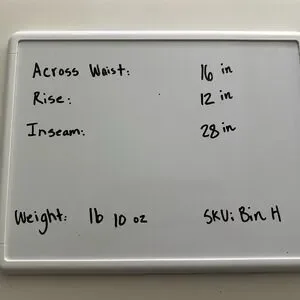 Across Waist: 16 in
Rise: 12 in
Inseam: 28 in
Weight: lb 10 oz SKU: Bin H